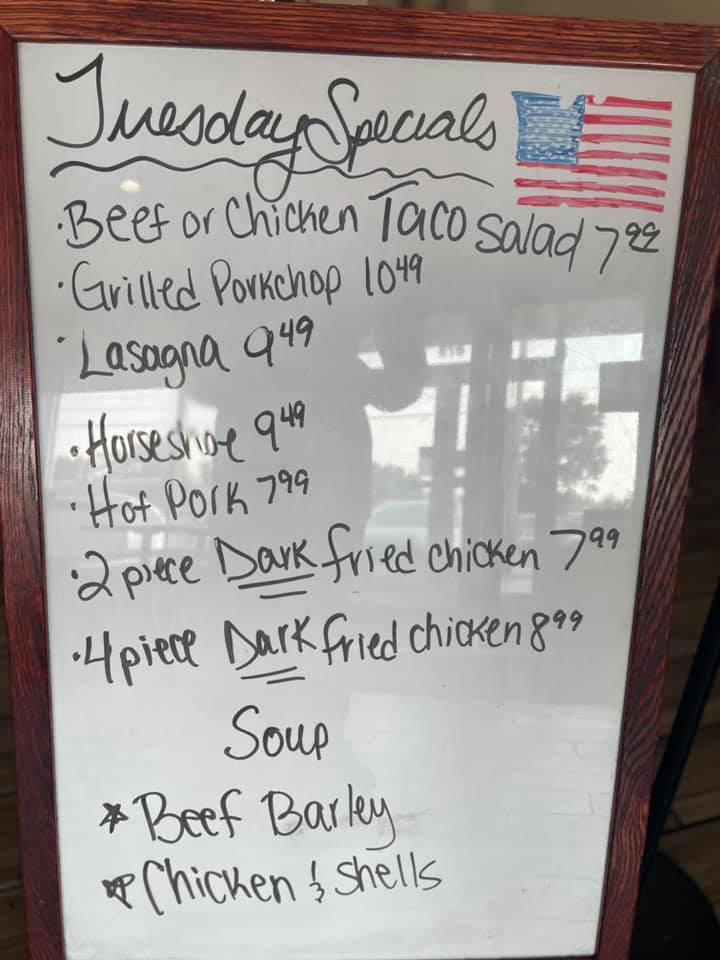 Tuesday Specials
·Beef or Chicken Taco Salad 7.99
·Grilled Porkchop 10.49
·Lasagna 9.49
·Horseshoe 9.49
·Hot Pork 7.99
·2 piece Dark fried chicken 7.99
·4 piece Dark fried chicken 8.99
Soup
*Beef Barley
*Chicken & Shells